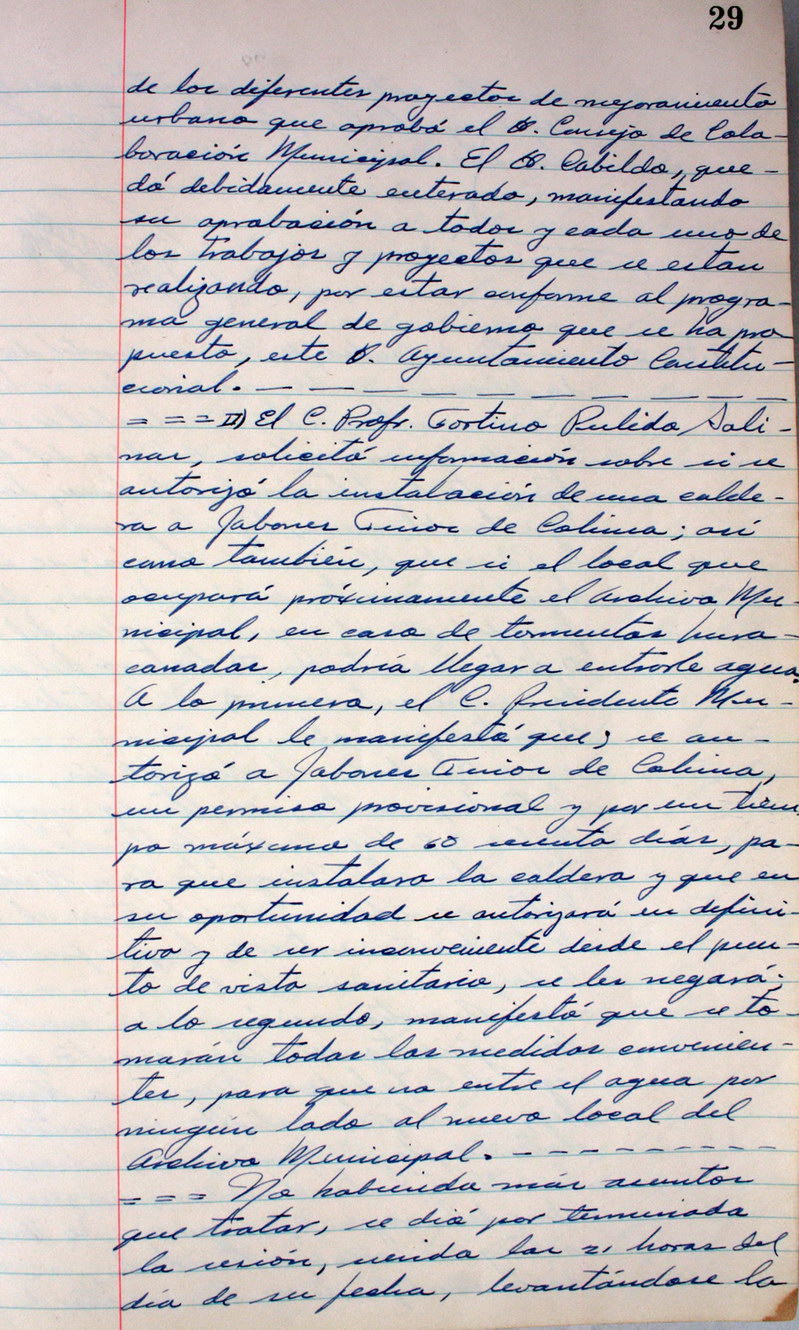 29
de los diferentes proyectos de mejoramiento
urbano que aprobó el H. Consejo de Cola-
boración Municipal. El H. Cabildo, que-
dó debidamente enterado, manifestando
su aprobación a todos y cada uno de
los trabajos y proyectos que se estan
realizando, por estar conforme al progra-
ma general de gobierno que se ha pro
puesto, este H. Ayuntamiento Constitu-
cional. - - - - - - - - -
= = = II) El C. Profr. Fortino Pulido Sali-
nas, solicitó información sobre si se
autorizó la instalación de una calde-
ra a Jabones Finos de Colima; así
como también, que si el local que
ocupará próximamente el Archivo Mu-
nicipal, en caso de tormentas hura-
canadas, podría llegar a entrarle agua.
A lo primero, el C. Presidente Mu-
nicipal le manifestó que; se au-
torizó a Jabones Finos de Colima,
un permiso provisional y por un tiem
po máximo de 60 sesenta días, pa-
ra que instalara la caldera y que en
su oportunidad se autorizará en defini-
tivo y de ser inconveniente desde el pun-
to de vista sanitario, se les negará;
a lo segundo, manifestó que se to-
marán todas las medidas convenien-
tes, para que no entre el agua por
ningún lado al nuevo local del
Archivo Municipal. - - - - - - - - -
= = = No habiendo más asuntos
que tratar, se dió por terminada
la sesión, siendo las 21 horas del
día de su fecha, levantándose la